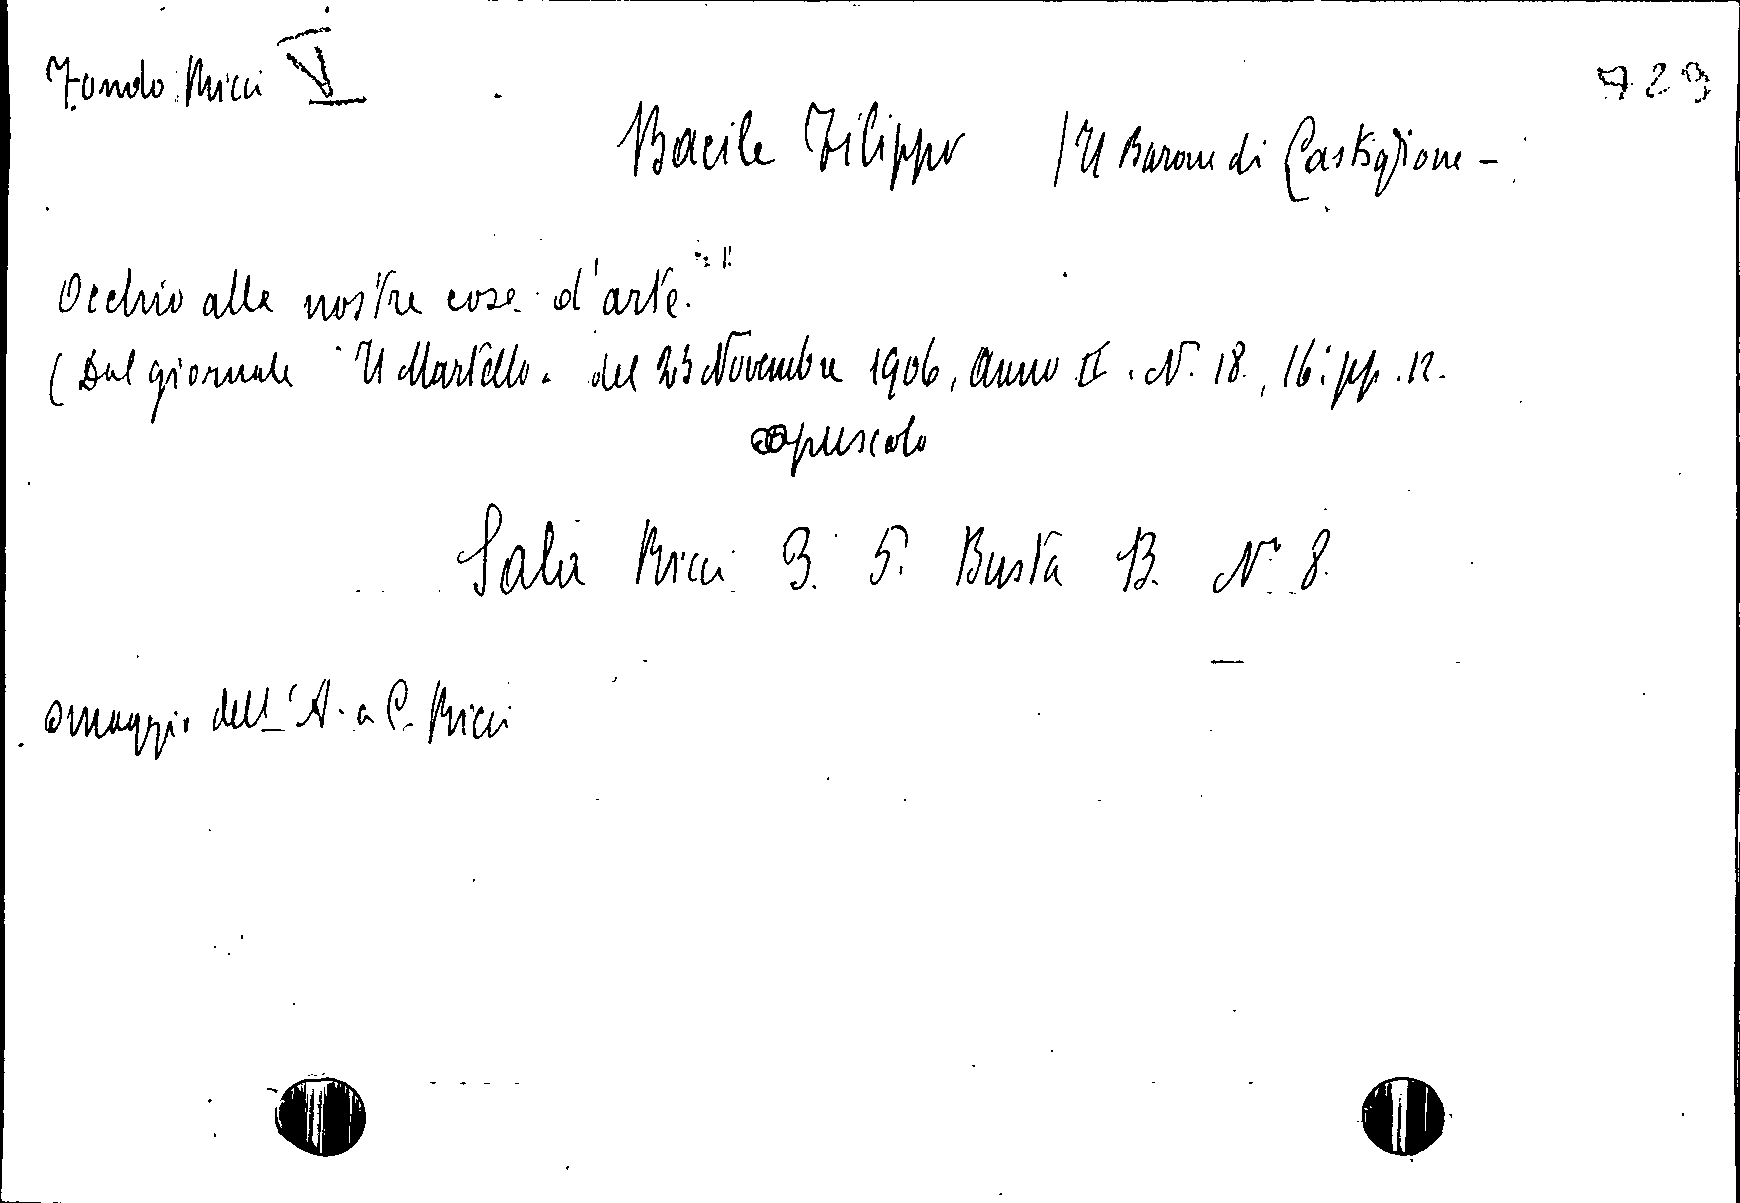 Fondo Ricci V
729
Bacile Filippo / Il Barone di Castiglione -
Occhio alle nostre cose d'arte. "
(Dal giornale "Il Martello" del 23 Novembre 1906, Anno II. N. 18., 16: pp. 12.
opuscolo
Sala Ricci 3. 5. Busta B. N° 8.
Omaggio dell'A. a C. Ricci